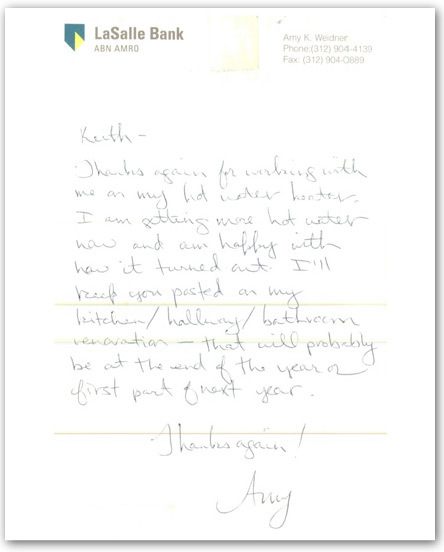 LaSalle Bank
ABN AMRO
Amy K. Weidner
Phone:(312) 904-4139
Fax: (312) 904-0889
Keith -
Thanks again for working with
me on my hot water heater.
I am getting more hot water
now and am happy with
how it turned out. I'll
keep you posted on my
kitchen/hallway/bathroom
renovation - that will probably
be at the end of the year or
first part of next year.
Thanks again!
Amy